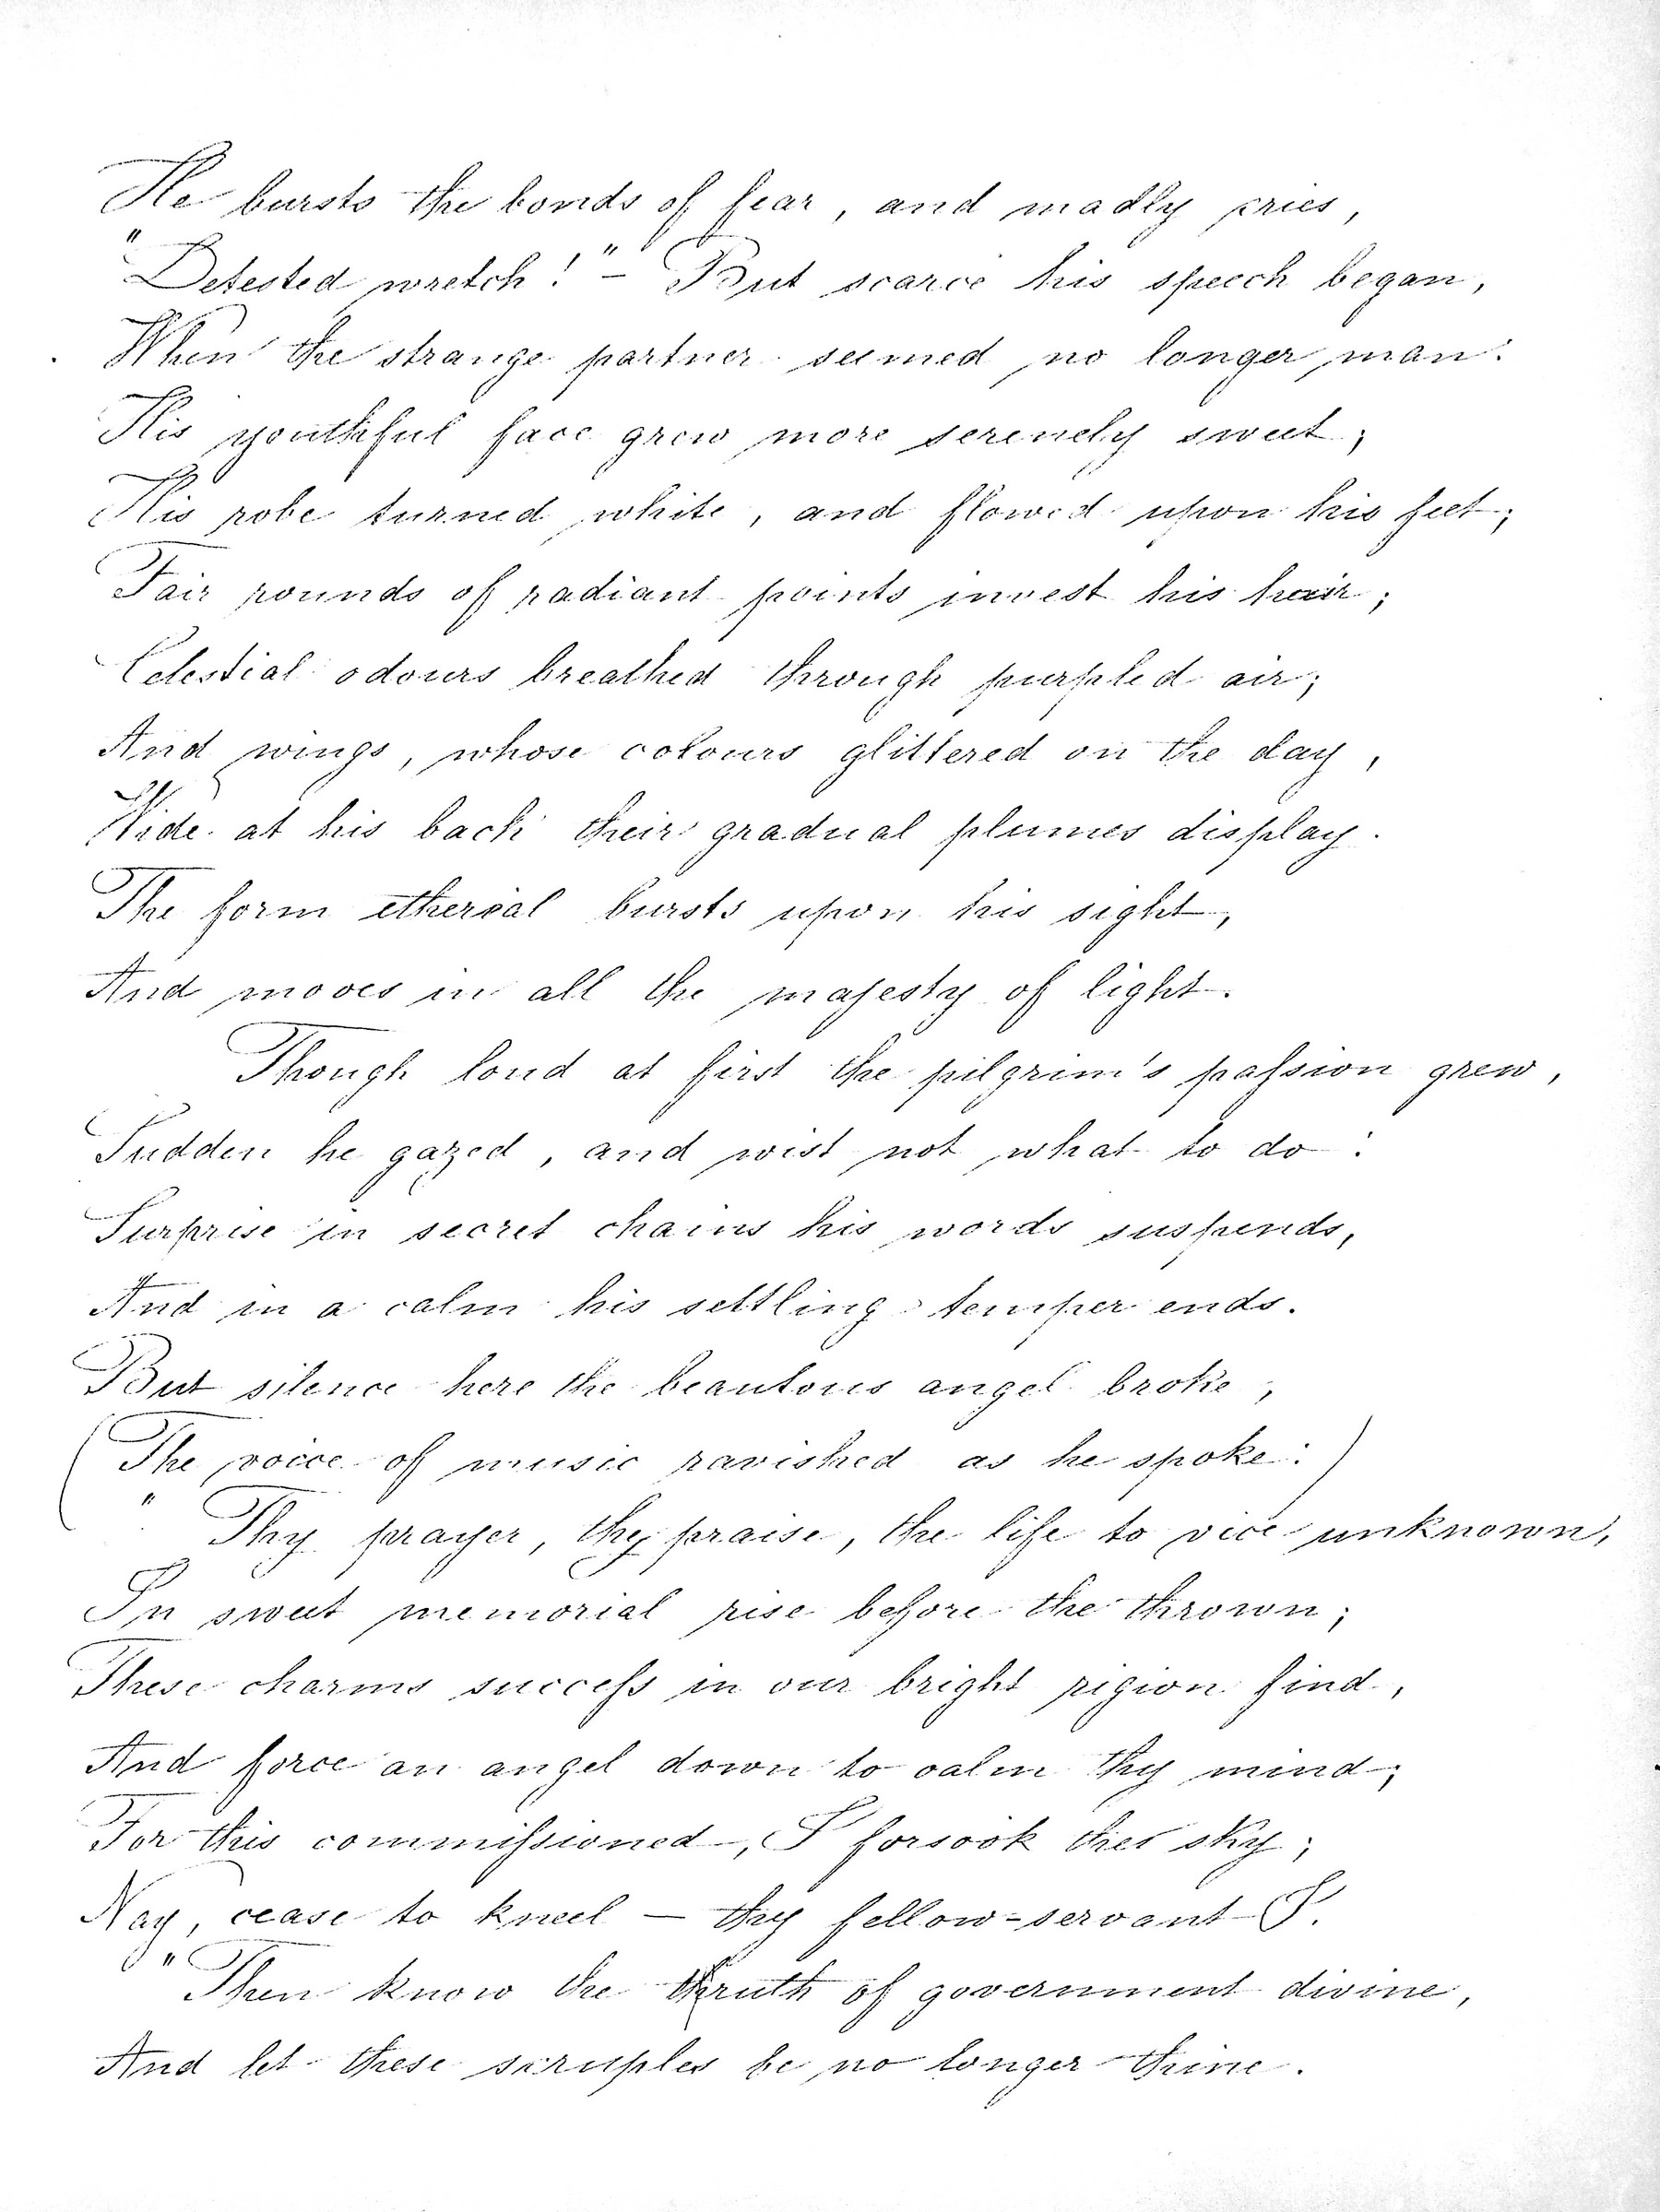 He bursts the bonds of fear, and madly cries,
"Detested wretch!" – But scarce his speech began,
When the strange partner seemed no longer man:
His youthful face grew more serenely sweet;
His robe turned white, and flowed upon his feet;
Fair rounds of radiant points invest his hair;
Celestial odours breathed through purpled air;
And wings, whose colours glittered on the day,
Wide at his back their gradual plumes display.
The form etherial bursts upon his sight,
And moves in all the majesty of light.
Though loud at first the pilgrim's paſsion grew,
Sudden he gazed, and wist not what to do:
Surprise in secret chains his words suspends,
And in a calm his settling temper ends.
But silence here the beautous angel broke,
(The voice of music ravished as he spoke:)
"Thy prayer, thy praise, the life to vice unknown,
In sweet memorial rise before the thrown;
These charms succeſs in our bright rigion find,
And force an angel down to calm thy mind;
For this commiſsioned, I forsook the sky;
Nay, cease to kneel — thy fellow-servant I.
"Then know the truth of government divine,
And let these scruples be no longer thine.